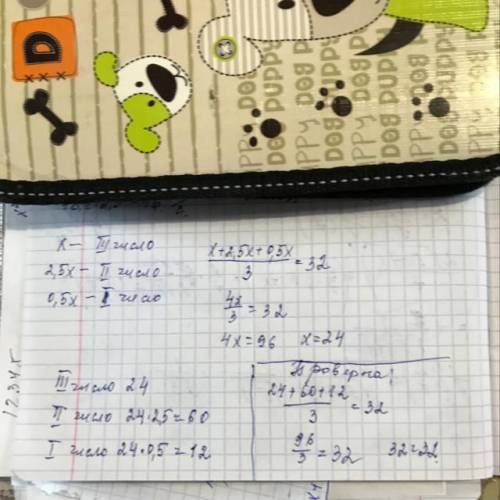 D
x x x
DOG PUPPY
DOG PUPPY
DOG PUPPY
x – III число
2,5x – II число
0,5x – I число
x+2,5x+0,5x
3
= 32
4x
3
= 32
4x = 96 x = 24
III число 24
II число 24·25 = 60
I число 24·0,5 = 12
Проверка
24+60+12
3
= 32
96
3
= 32 32 = 32
1 2 3 4 5